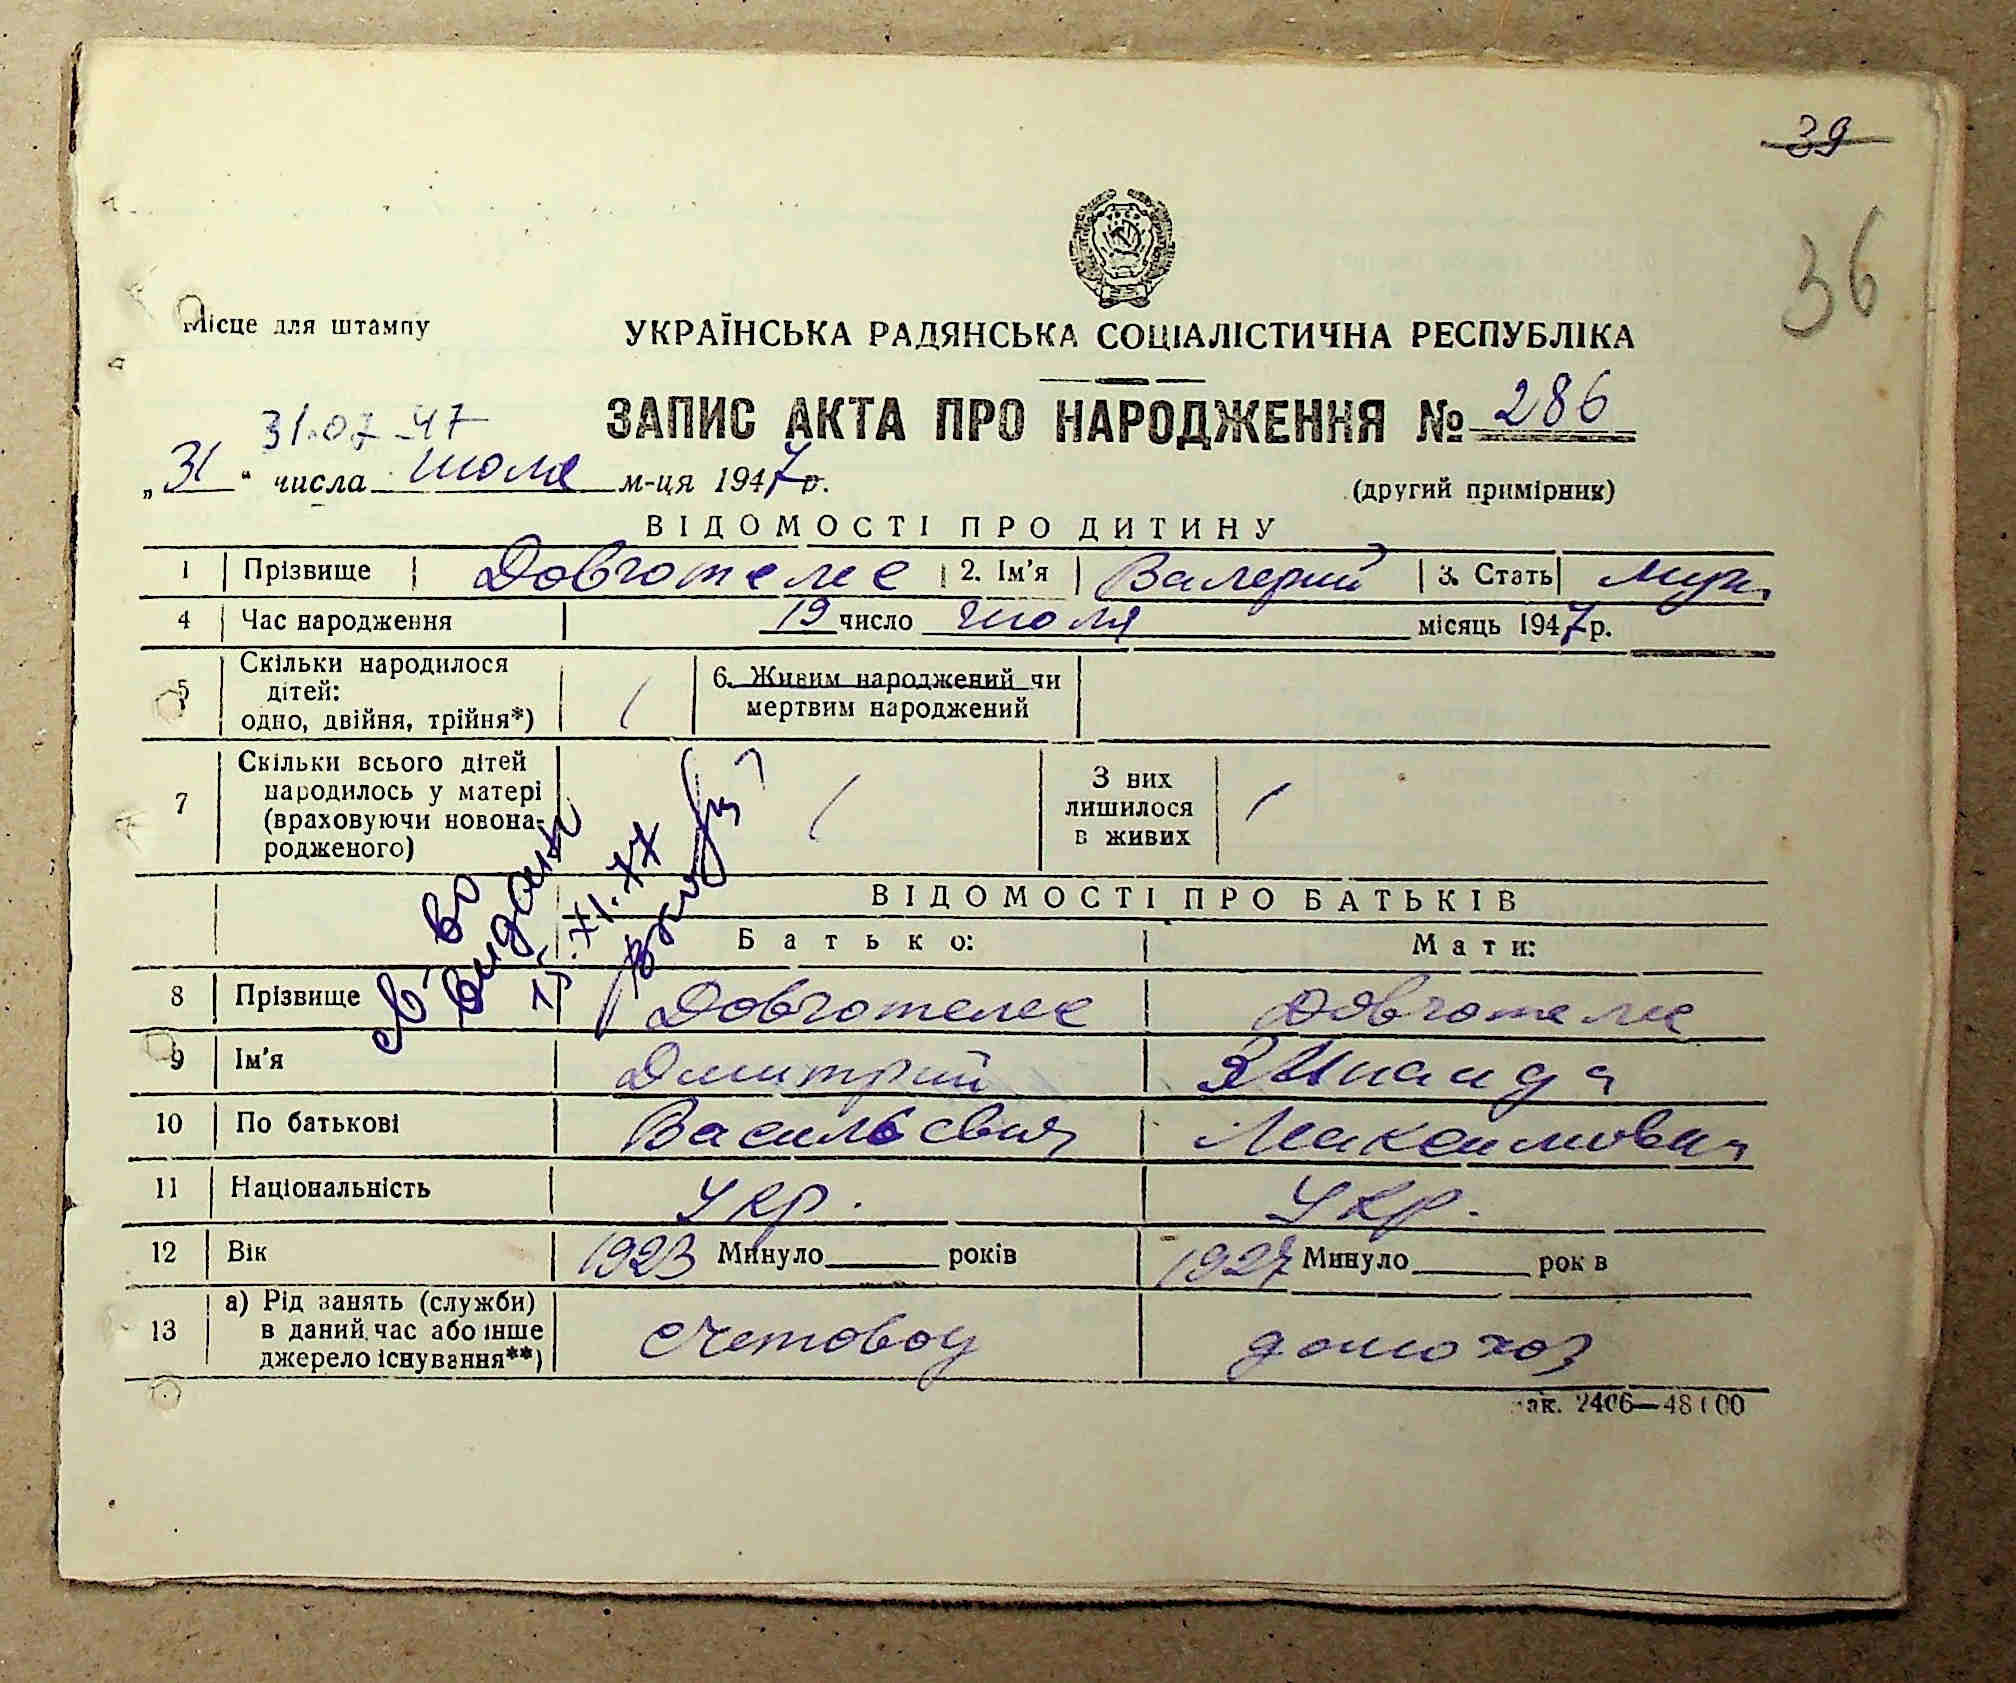 39
36
Місце для штампу
УКРАЇНСЬКА РАДЯНСЬКА СОЦІАЛІСТИЧНА РЕСПУБЛІКА
ЗАПИС АКТА ПРО НАРОДЖЕННЯ № 286
31.07.47
„31“ числа июля м-ця 1947 р.
(другий примірник)
ВІДОМОСТІ ПРО ДИТИНУ
1 Прізвище Довготелес 2. Ім'я Валерий 3. Стать Муж.
4 Час народження 19 число июля місяць 1947 р.
5 Скільки народилося дітей: одно, двійня, трійня*) 1 6. Живим народжений чи мертвим народжений
7 Скільки всього дітей народилось у матері (враховуючи новонародженого) 1 З них лишилося в живих 1
ВІДОМОСТІ ПРО БАТЬКІВ
Батько: Мати:
8 Прізвище Довготелес Довготелес
9 Ім'я Дмитрий Зинаида
10 По батькові Васильевич Максимовна
11 Національність Укр. Укр.
12 Вік 1923 Минуло років 1927 Минуло рок в
13 а) Рід занять (служби) в даний час або інше джерело існування**) счетовод домохоз